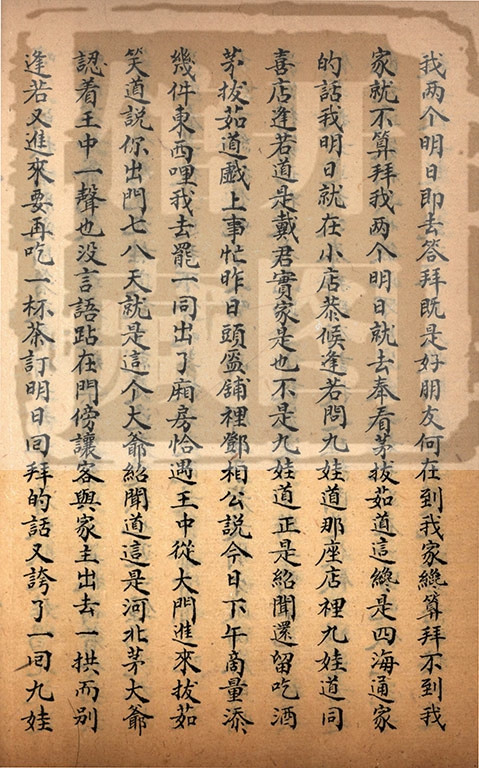 我两个明日即去答拜既是好朋友何在到我家纔算拜不到我
家就不算拜我两个明日就去奉看茅拔茹道這纔是四海通家
的話我明日就在小店恭候逢若問九娃道那座店裡九娃道同
喜店逢若道是戴君實家是也不是九娃道正是紹聞還留吃酒
茅拔茹道戲上事忙昨日頭盔舖裡鄧相公説今日下午商量添
幾件東西哩我去罷一同出了廂房恰遇王中從大門進來拔茹
笑道説你出門七八天就是這个大爺紹聞道這是河北茅大爺
認着王中一聲也没言語跕在門傍讓客與家主出去一拱而别
逢若又進來要再吃一杯茶訂明日回拜的話又誇了一回九娃